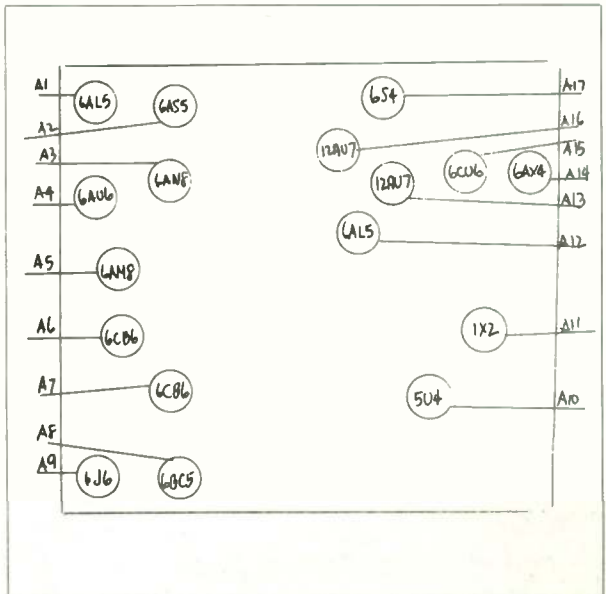 A1
6AL5
A2
6AS5
A3
6AN8
A4
6AU6
A5
6AM8
A6
6CB6
A7
6CB6
A8
6BC5
A9
6J6
6S4
A17
12AU7
A16
6CU6
A15
6AX4
A14
12AU7
A13
6AL5
A12
1X2
A11
5U4
A10